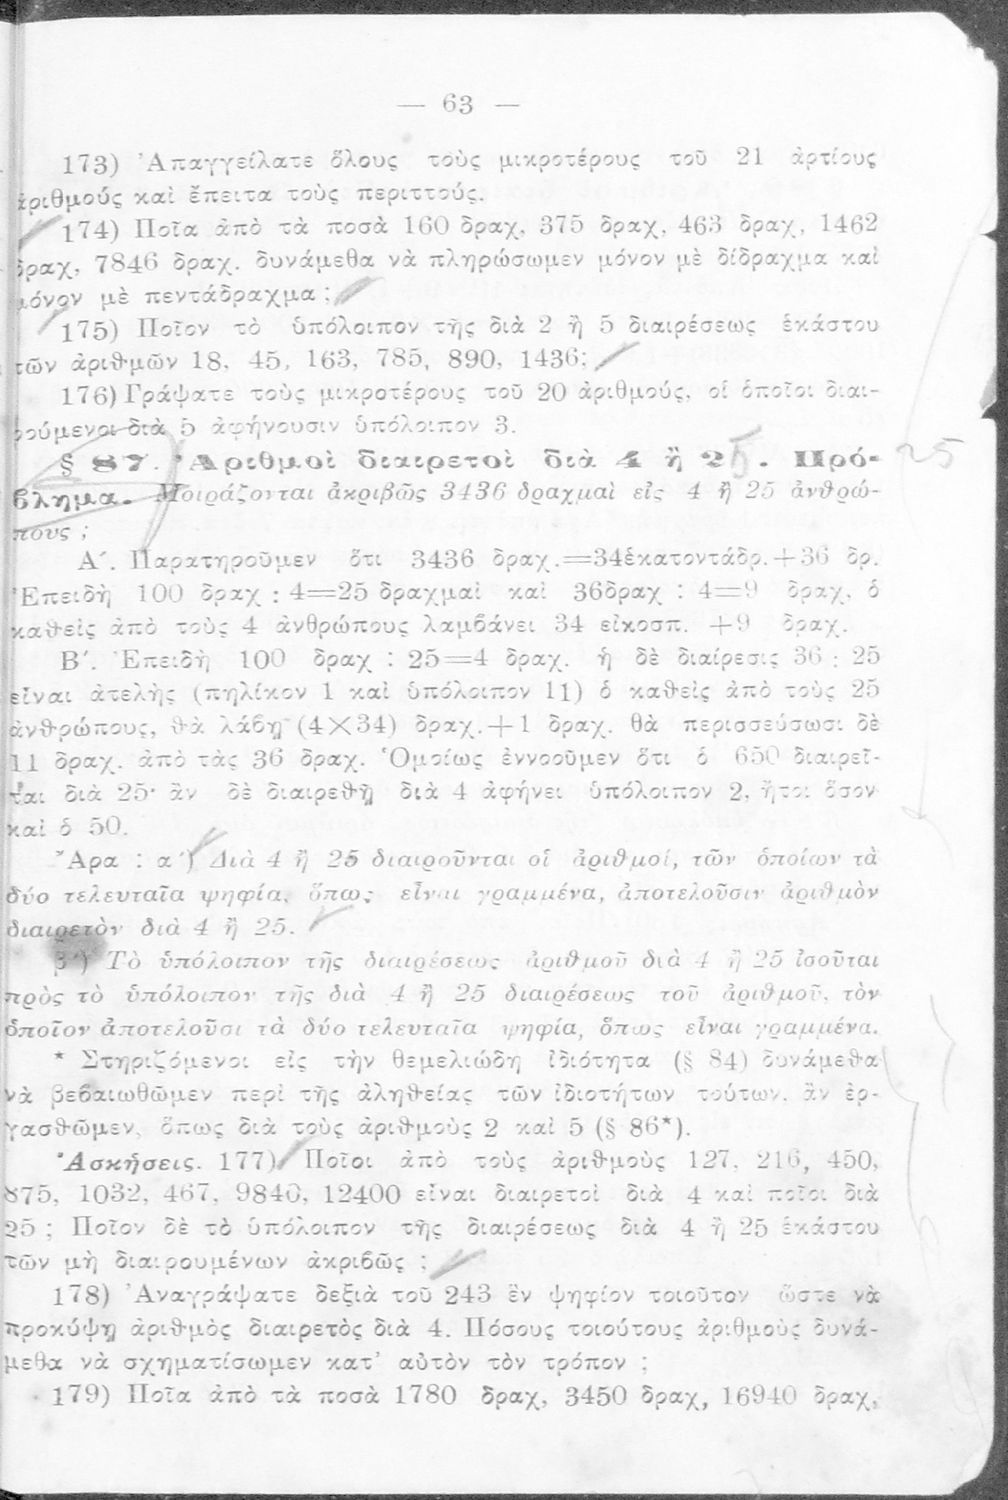 — 63 —
173) Ἀπαγγείλατε ὅλους τοὺς μικροτέρους τοῦ 21 ἀρτίους
ἀριθμούς καὶ ἔπειτα τοὺς περιττούς.
174) Ποῖα ἀπὸ τὰ ποσὰ 160 δραχ. 375 δραχ. 463 δραχ, 1462
δραχ, 7846 δραχ. δυνάμεθα νὰ πληρώσωμεν μόνον μὲ δίδραχμα καὶ
μόνον μὲ πεντάδραχμα ;
175) Ποῖον τὸ ὑπόλοιπον τῆς διὰ 2 ἢ 5 διαιρέσεως ἑκάστου
τῶν ἀριθμῶν 18, 45, 163, 785, 890, 1436;
176) Γράψατε τοὺς μικροτέρους τοῦ 20 ἀριθμούς, οἱ ὁποῖοι διαι-
ρούμενοι διὰ 5 ἀφήνουσιν ὑπόλοιπον 3.
§ 87. Ἀριθμοὶ διαιρετοὶ διὰ 4 ἢ 25. Πρό- 25
βλημα. Μοιράζονται ἀκριβῶς 3436 δραχμαὶ εἰς 4 ἢ 25 ἀνθρώ-
πους ;
Α΄. Παρατηροῦμεν ὅτι 3436 δραχ.=34ἑκατοντάδρ.+36 δρ.
Ἐπειδὴ 100 δραχ : 4=25 δραχμαὶ καὶ 36δραχ : 4=9 δραχ, ὁ
καθεὶς ἀπὸ τοὺς 4 ἀνθρώπους λαμβάνει 34 εἰκοσπ. +9 δραχ.
Β΄. Ἐπειδὴ 100 δραχ : 25=4 δραχ. ἡ δὲ διαίρεσις 36 : 25
εἶναι ἀτελὴς (πηλίκον 1 καὶ ὑπόλοιπον 11) ὁ καθεὶς ἀπὸ τοὺς 25
ἀνθρώπους, θὰ λάβῃ (4×34) δραχ.+1 δραχ. θὰ περισσεύσωσι δὲ
11 δραχ. ἀπὸ τὰς 36 δραχ. Ὁμοίως ἐννοοῦμεν ὅτι ὁ 650 διαιρεῖ-
ται διὰ 25· ἂν δὲ διαιρεθῇ διὰ 4 ἀφήνει ὑπόλοιπον 2, ἤτοι ὅσον
καὶ ὁ 50.
Ἄρα : α΄) Διὰ 4 ἢ 25 διαιροῦνται οἱ ἀριθμοί, τῶν ὁποίων τὰ
δύο τελευταῖα ψηφία, ὅπως εἶναι γραμμένα, ἀποτελοῦσιν ἀριθμὸν
διαιρετὸν διὰ 4 ἢ 25.
β΄) Τὸ ὑπόλοιπον τῆς διαιρέσεως ἀριθμοῦ διὰ 4 ἢ 25 ἰσοῦται
πρὸς τὸ ὑπόλοιπον τῆς διὰ 4 ἢ 25 διαιρέσεως τοῦ ἀριθμοῦ, τὸν
ὁποῖον ἀποτελοῦσι τὰ δύο τελευταῖα ψηφία, ὅπως εἶναι γραμμένα.
* Στηριζόμενοι εἰς τὴν θεμελιώδη ἰδιότητα (§ 84) δυνάμεθα
νὰ βεβαιωθῶμεν περὶ τῆς ἀληθείας τῶν ἰδιοτήτων τούτων, ἂν ἐρ-
γασθῶμεν, ὅπως διὰ τοὺς ἀριθμοὺς 2 καὶ 5 (§ 86*).
Ἀσκήσεις. 177) Ποῖοι ἀπὸ τοὺς ἀριθμοὺς 127, 216, 450,
875, 1032, 467, 9840, 12400 εἶναι διαιρετοὶ διὰ 4 καὶ ποῖοι διὰ
25 ; Ποῖον δὲ τὸ ὑπόλοιπον τῆς διαιρέσεως διὰ 4 ἢ 25 ἑκάστου
τῶν μὴ διαιρουμένων ἀκριβῶς ;
178) Ἀναγράψατε δεξιὰ τοῦ 243 ἓν ψηφίον τοιοῦτον ὥστε νὰ
προκύψῃ ἀριθμὸς διαιρετὸς διὰ 4. Πόσους τοιούτους ἀριθμοὺς δυνά-
μεθα νὰ σχηματίσωμεν κατ' αὐτὸν τὸν τρόπον ;
179) Ποῖα ἀπὸ τὰ ποσὰ 1780 δραχ, 3450 δραχ, 16940 δραχ,